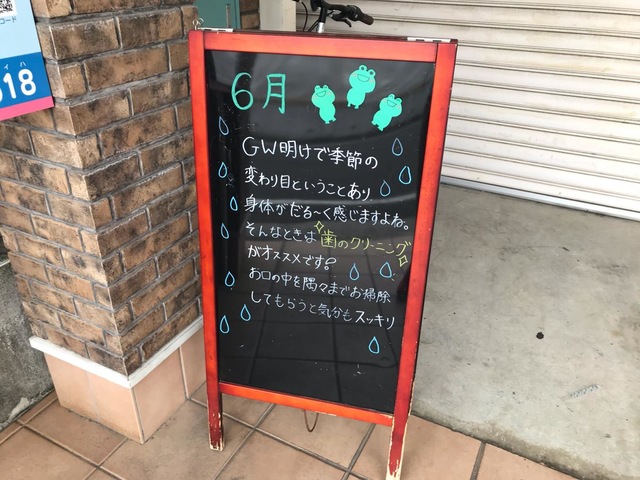 コード
518
6月
GW明けで季節の
変わり目ということあり、
身体がだる〜く感じますよね。
そんなときは歯のクリーニング
がオススメです?
お口の中を隅々までお掃除
してもらうと気分もスッキリ